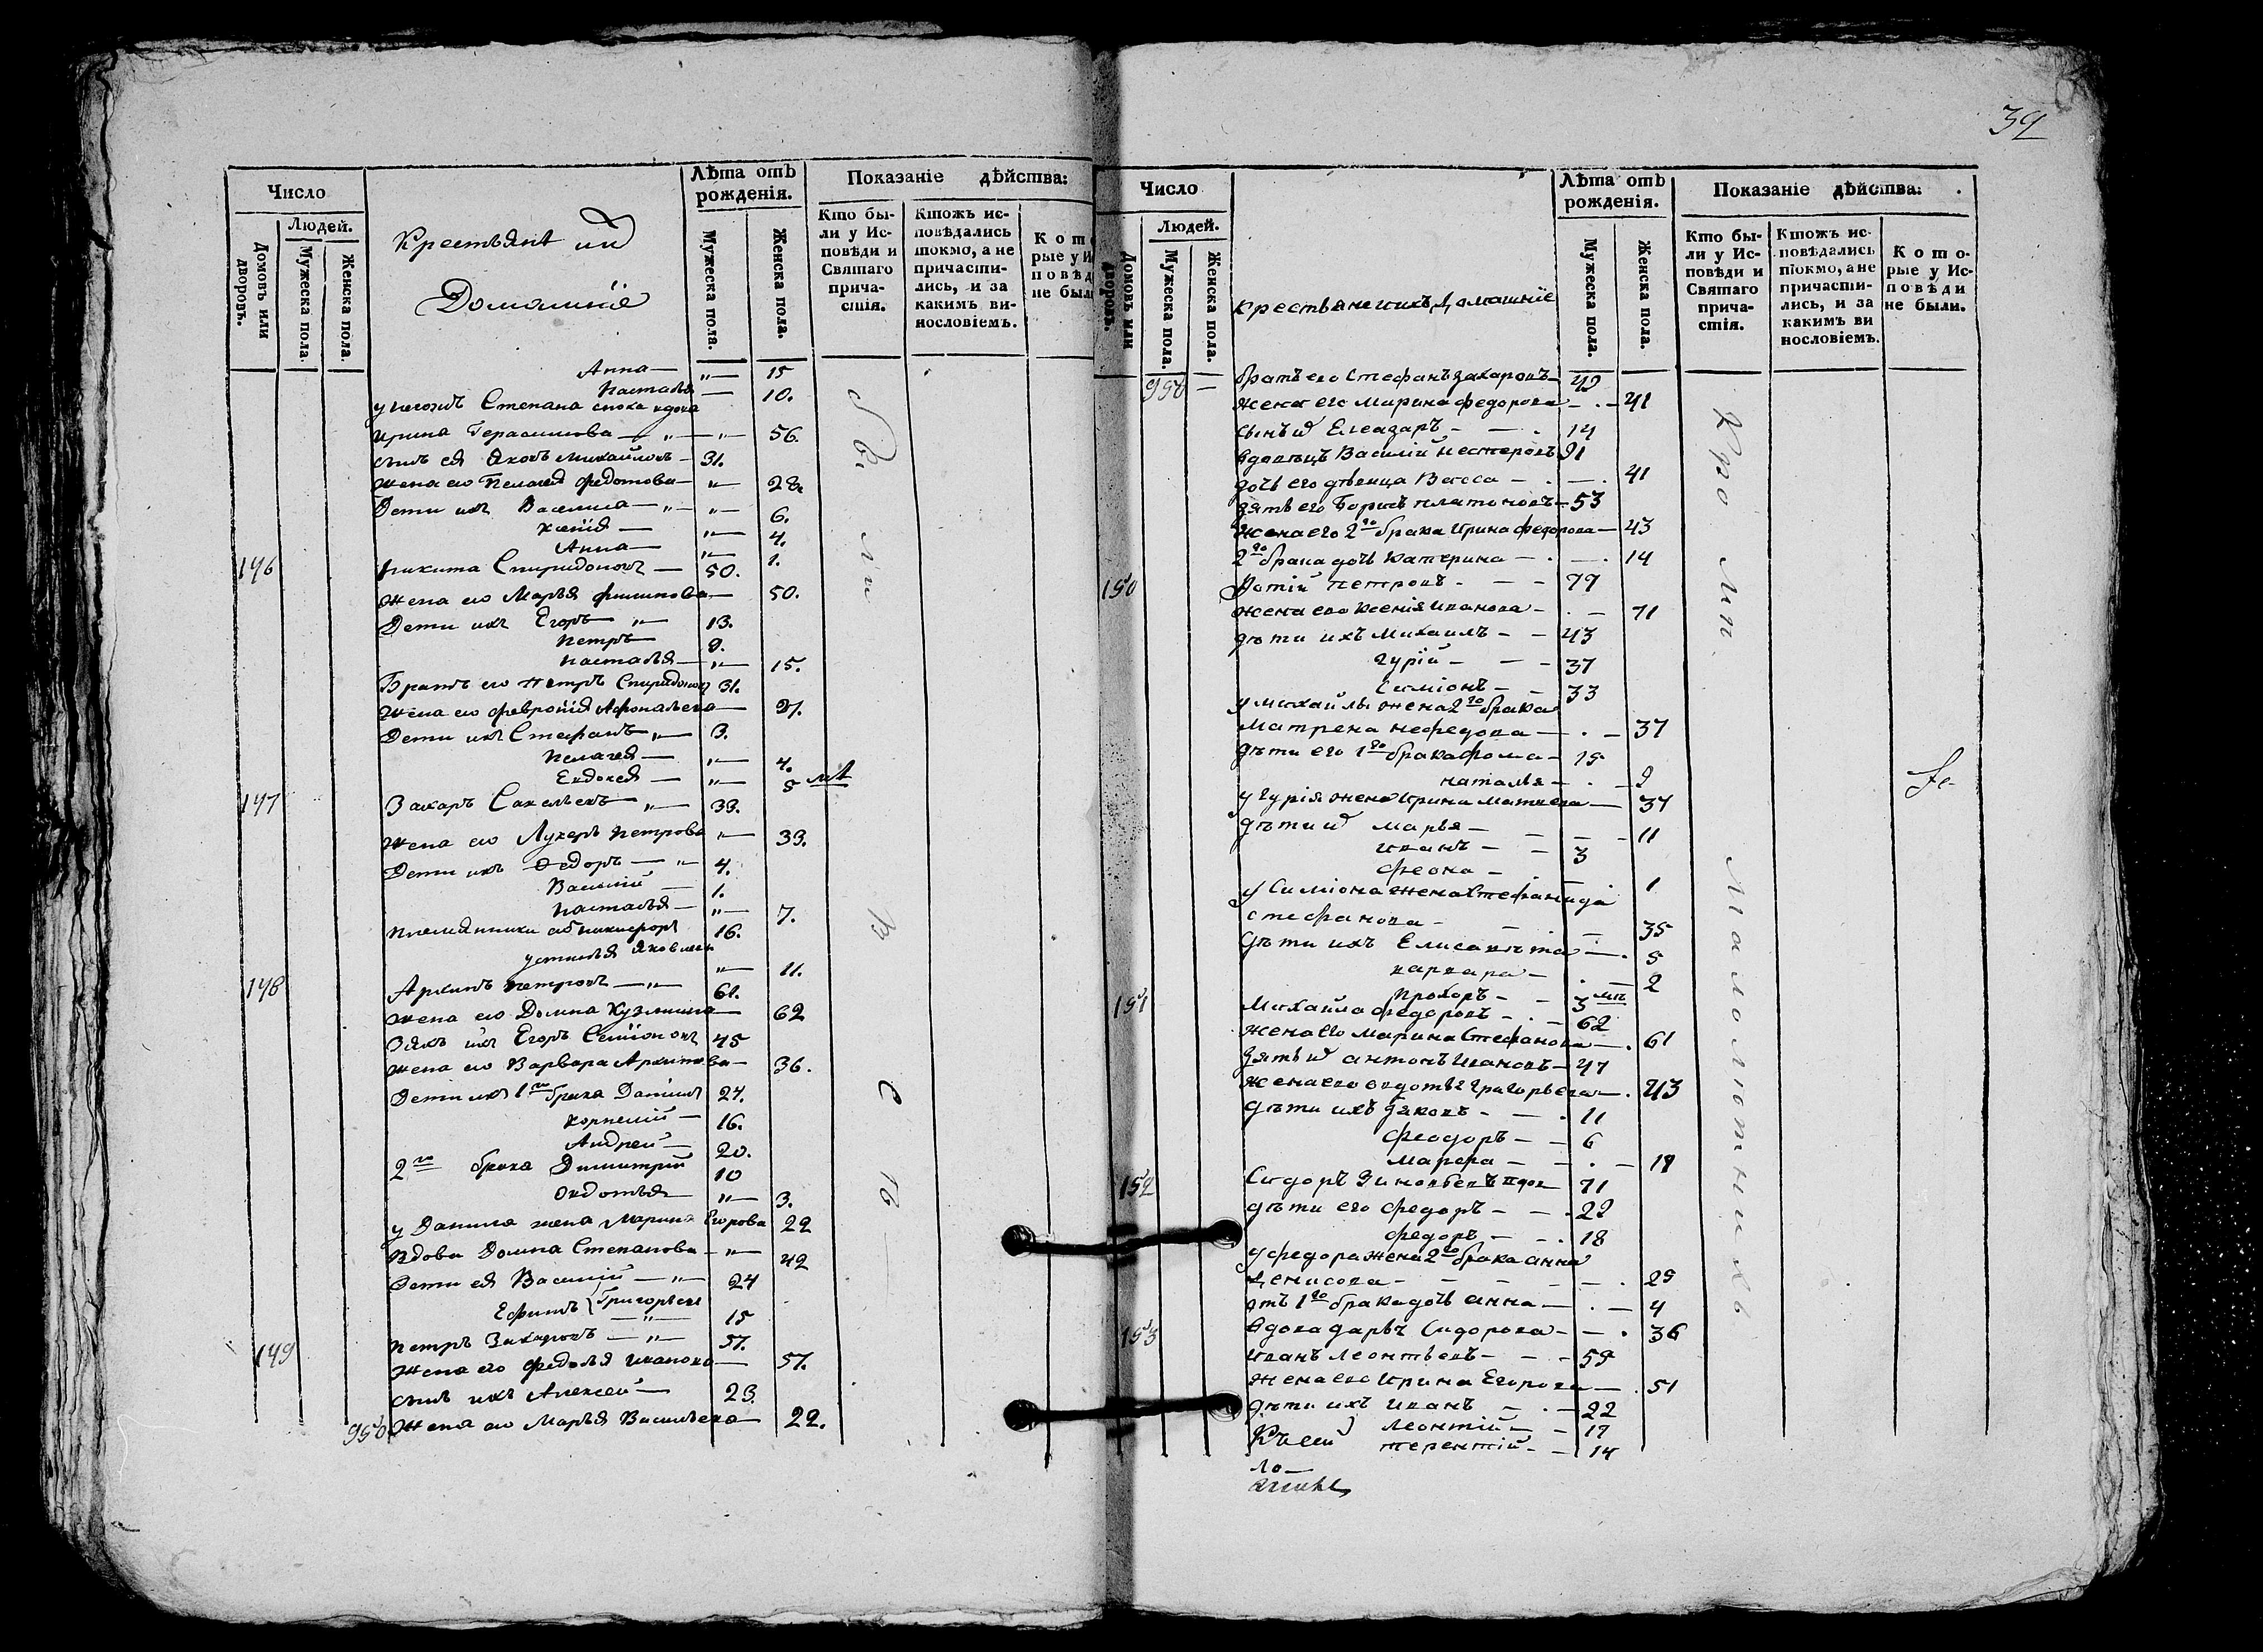 39
Число
Людей.
Домовъ или дворовъ.
Мужеска пола.
Женска пола.
Крестьянѣ
Домашніе
Лѣта отъ рожденія.
Мужеска пола.
Женска пола.
Показаніе дѣйства:
Кто бы-
ли у Ис-
повѣди и
Святаго
прича-
стія.
Ктожъ ис-
повѣдались
токмо, а не
причасти-
лись, и за
какимъ ви-
нословіемъ.
Анна — „ — 15
Наталья — 10.
Степана снока вдова
Ирина Герасимова — „ — „ — 56.
сынъ ея Яковъ Михайловъ — 31.
жена его Пелагея Федотова — „ — 28.
Дети ихъ Василиса — „ — „ — 6.
Ксенія — „ — 4.
Анна — „ — 1.
146 Никита Спиридоновъ — 50.
жена его Марья Филипова — 50.
Дети ихъ Егоръ „ — 13.
Петръ — 9.
Наталья — „ — 15.
Братъ его Петръ Спиридоновъ 31.
Жена его Февронія Афонасьева — 27.
Дети ихъ Стефанъ „ — 3.
Пелагея — „ — 4.
Евдокея — „ — 5
147 Захаръ Савельевъ „ — 33.
жена его Лукерья Петрова „ — 33.
Дети ихъ Федоръ — „ 4.
Василій — 1.
Наталья — „ — 7.
племянники Никифоръ 16.
устинья Яковлевы „ — 11.
148 Архипъ Петровъ — „ — 61.
жена его Домна Кузмина — 62
Зять ихъ Егоръ Семіоновъ 45
жена его Варвара Архипова — 36.
Дети ихъ 1го брака Данилъ 24.
Корнелій — 16.
Андрей — 20.
2го брака Димитрій 10
Овдотья — „ — 3.
у Данила жена Марина Егорова 22
Вдова Домна Степанова — „ — 42
Дети ея Василій — „ — 24
Ефимъ } Григорьевы — „ — 15
149 Петръ Захаровъ — „ — 57.
Жена его Федосья Иванова — 57.
сынъ ихъ Алексей — 23.
Жена его Марья Васильева — 22.
Число
Людей.
Домовъ или дворовъ.
Мужеска пола.
Женска пола.
крестьяне ихъ домашніе
Лѣта отъ рожденія.
Мужеска пола.
Женска пола.
Показаніе дѣйства:
Кто бы-
ли у Ис-
повѣди и
Святаго
прича-
стія.
Ктожъ ис-
повѣдались
токмо, а не
причасти-
лись, и за
какимъ ви
нословіемъ.
Кото-
рые у Ис-
повѣди
не были.
братъ его Стефанъ Захаровъ — 49
жена его Марина Федорова — . — 41
сынъ Елеазаръ — — . 14
вдовецъ Василій Нестеровъ 91
дочь его девица Васса — . — . 41
зять его Борисъ Платоновъ — 53
жена его 2го брака Ирина Федорова — 43
2го брака дочь Катерина — . — . 14
150 Фотій Петровъ — — — 79
жена его Ксенія Иванова — . — 71
дѣти ихъ Михаилъ — — 43
Гурій — — — 37
Симіонъ — — 33
у Михайлы жена 2го брака
Матрена Нефедова — . — 37
дѣти его 1го брака Фома — 15
наталья — . — 9
у Гурія жена Ирина Матвева — 37
дѣти Марья — — — — 11
иванъ — — 3
Феона — — — 1
у Симіона жена Стефанида
Стефанова — — — 35
дѣти ихъ Елисавѣта — . 5
варвара — . — 2
Прохоръ — — 3
151 Михайла Федоровъ — . — 62
жена его Марина Стефанова — . 61
зять Антонъ Ивановъ — 47
жена его Овдотья Григорьева — . 43
дѣти ихъ Яковъ — — . 11
Феодоръ — — 6
Марфа — — . — 18
152 Сидоръ Зиновьевъ вдов 71
дѣти его Федоръ — — . 22
Федоръ — — . 18
у Федора жена 2го брака анна
Денисова — — — — — . 25
отъ 1го брака дочь анна — . — 4
вдова дарья Сидорова — — . 36
153 Иванъ Леонтьевъ — — — 59
Жена его Ирина Егорова — . 51
дѣти ихъ Иванъ — . — 22
Леонтій — — 17
терентій — — 14
Къ сей
Маломютникъ